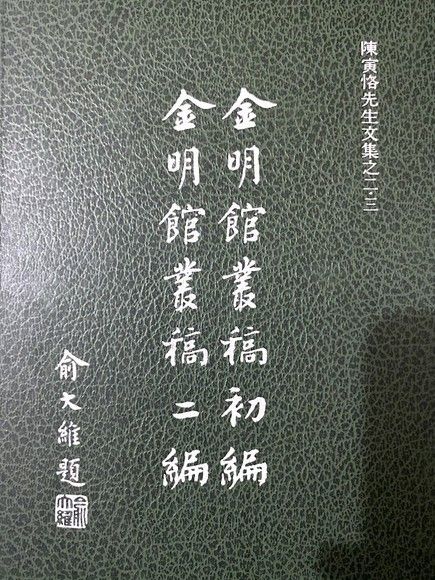 陳寅恪先生文集之二·三
金明館叢稿初編
金明館叢稿二編
俞大維題
俞大維